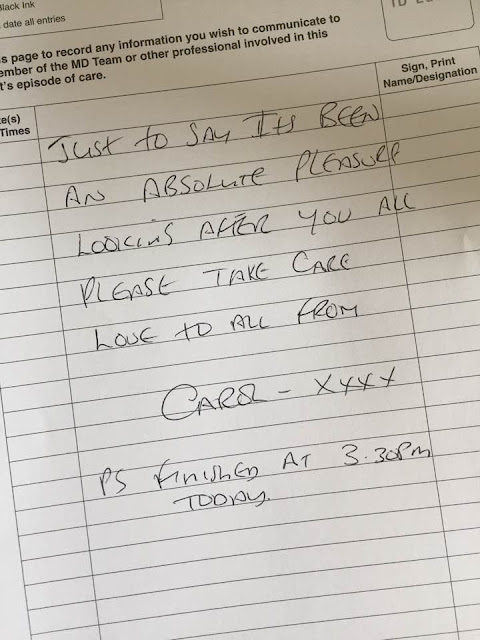 Black Ink
date all entries
s page to record any information you wish to communicate to
ember of the MD Team or other professional involved in this
t's episode of care.
e(s)
Times
Sign, Print
Name/Designation
JUST TO SAY ITS BEEN
AN ABSOLUTE PLEASURE
LOOKING AFTER YOU ALL
PLEASE TAKE CARE
LOVE TO ALL FROM
CAROL - XXXX
PS FINISHED AT 3.30PM
TODAY.